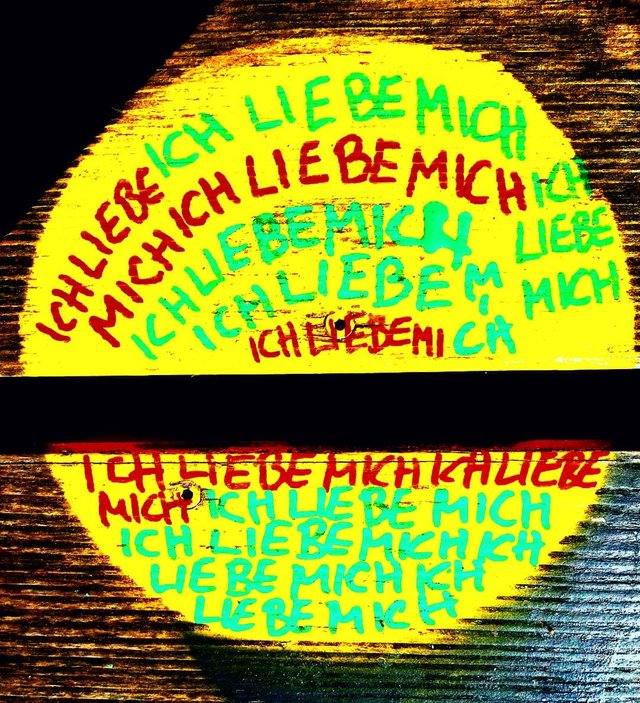 ICH LIEBE MICH
ICH LIEBE
MICH ICH LIEBE MICH
ICH
LIEBE
MICH
ICH LIEBE MICH
ICH LIEBE M
ICH LIEBE MI CH
ICH LIEBE MICH ICH LIEBE
MICH ICH LIEBE MICH
ICH LIEBE MICH ICH
LIEBE MICH ICH
LIEBE MICH